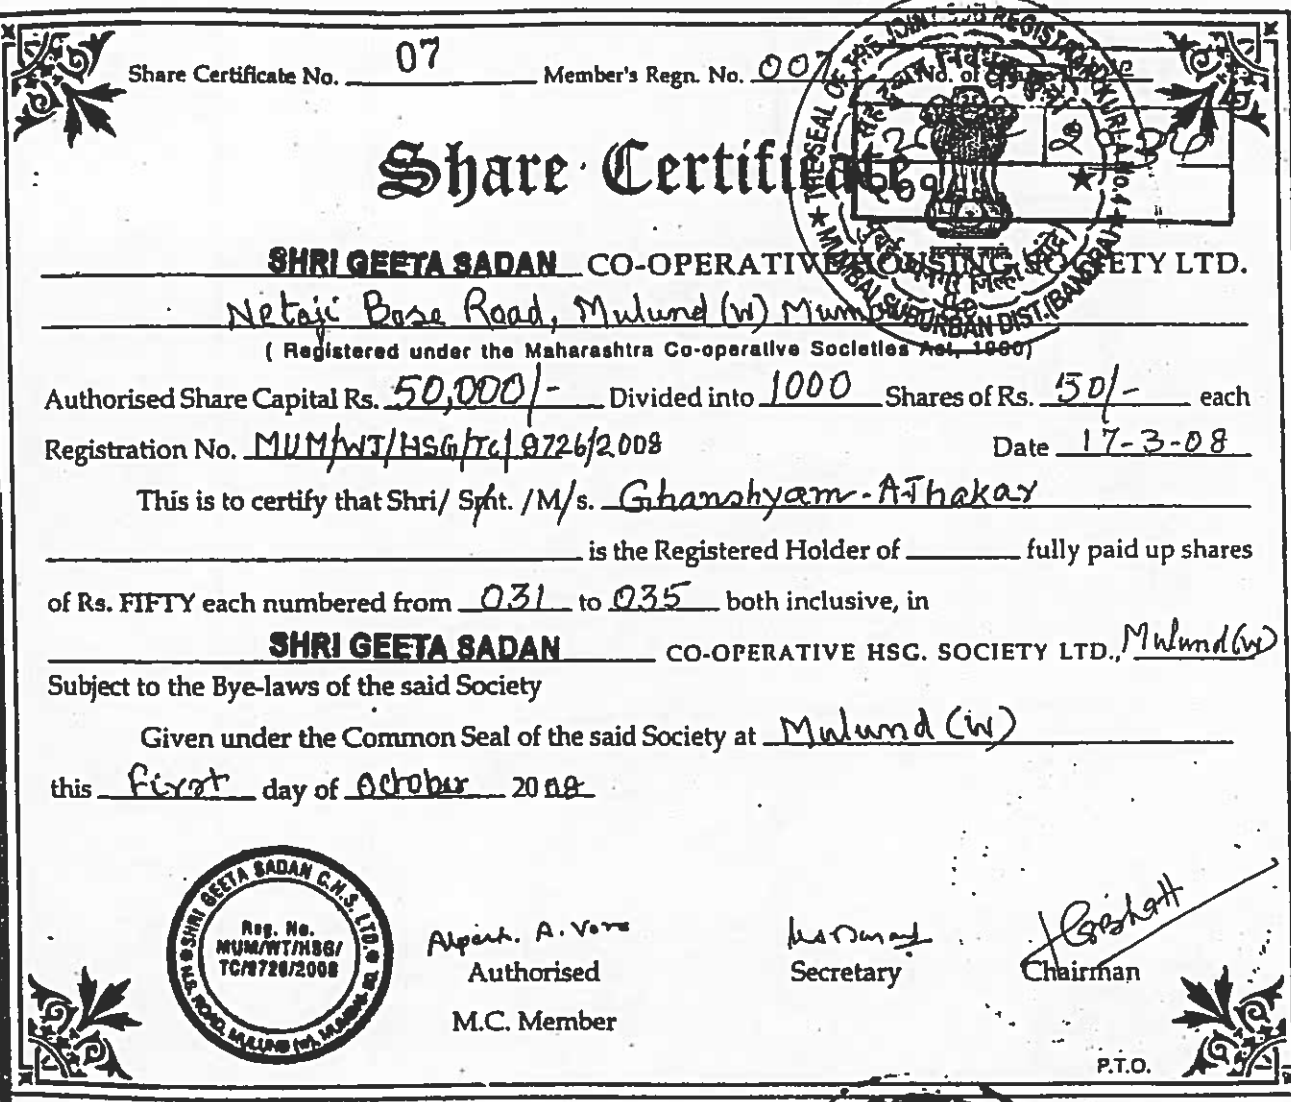 Share Certificate No. 07 Member's Regn. No. 007 No. of
Share Certificate
SHRI GEETA SADAN CO-OPERATIVE HOUSING SOCIETY LTD.
Netaji Bose Road, Mulund (W)
( Registered under the Maharashtra Co-operative Societies Act, 1960)
Authorised Share Capital Rs. 50,000/- Divided into 1000 Shares of Rs. 50/- each
Registration No. MUM/WT/HSG/TC/9726/2008 Date 17-3-08
This is to certify that Shri/ Smt. /M/s. Ghanshyam A Thakar
is the Registered Holder of fully paid up shares
of Rs. FIFTY each numbered from 031 to 035 both inclusive, in
SHRI GEETA SADAN CO-OPERATIVE HSG. SOCIETY LTD., Mulund (W)
Subject to the Bye-laws of the said Society
Given under the Common Seal of the said Society at Mulund (W)
this First day of October 2008
THE SEAL OF THE JOINT SUB REGISTRAR KURLA No.4
MUMBAI SUBURBAN DIST. (BANDRA)
SHRI GEETA SADAN C.H.S. LTD.
N.S. ROAD, MULUND (W), MUMBAI
Reg. No.
MUM/WT/HSG/
TC/9726/2008
Alpesh. A. Vora
Authorised
M.C. Member
Secretary
Chairman
P.T.O.